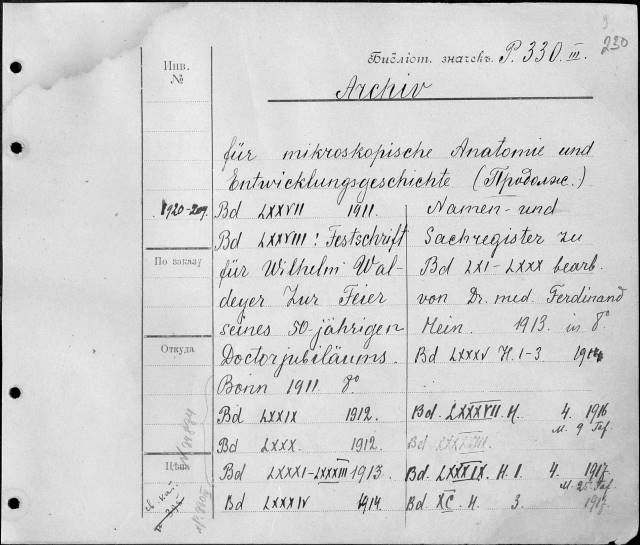 230
Библіот. значекъ. P. 330. III.
Archiv
für mikroskopische Anatomie und
Entwicklungsgeschichte (Продолж.)
Инв.
№
1920-209.
По заказу
Откуда
Цѣна
Bd LXXVII 1911.
Bd LXXVIII: Festschrift
für Wilhelm Wal-
deyer Zur Feier
seines 50-jährigen
Doctorjubiläums.
Bonn 1911 8°
Bd LXXIX 1912.
Bd LXXX. 1912.
Bd LXXXI-LXXXIII 1913.
Bd LXXXIV 1914.
Namen- und
Sachregister zu
Bd LXI-LXXX bearb.
von Dr. med. Ferdinand
Hein. 1913. in 8°
Bd LXXXV H. 1-3 1914
Bd. LXXXVII. H. 4. 1916
M. 9 Taf.
Bd LXXXVIII.
Bd. LXXXIX. H. 1. 4. 1917.
M. 25 Taf.
Bd XC. H. 3. 1917